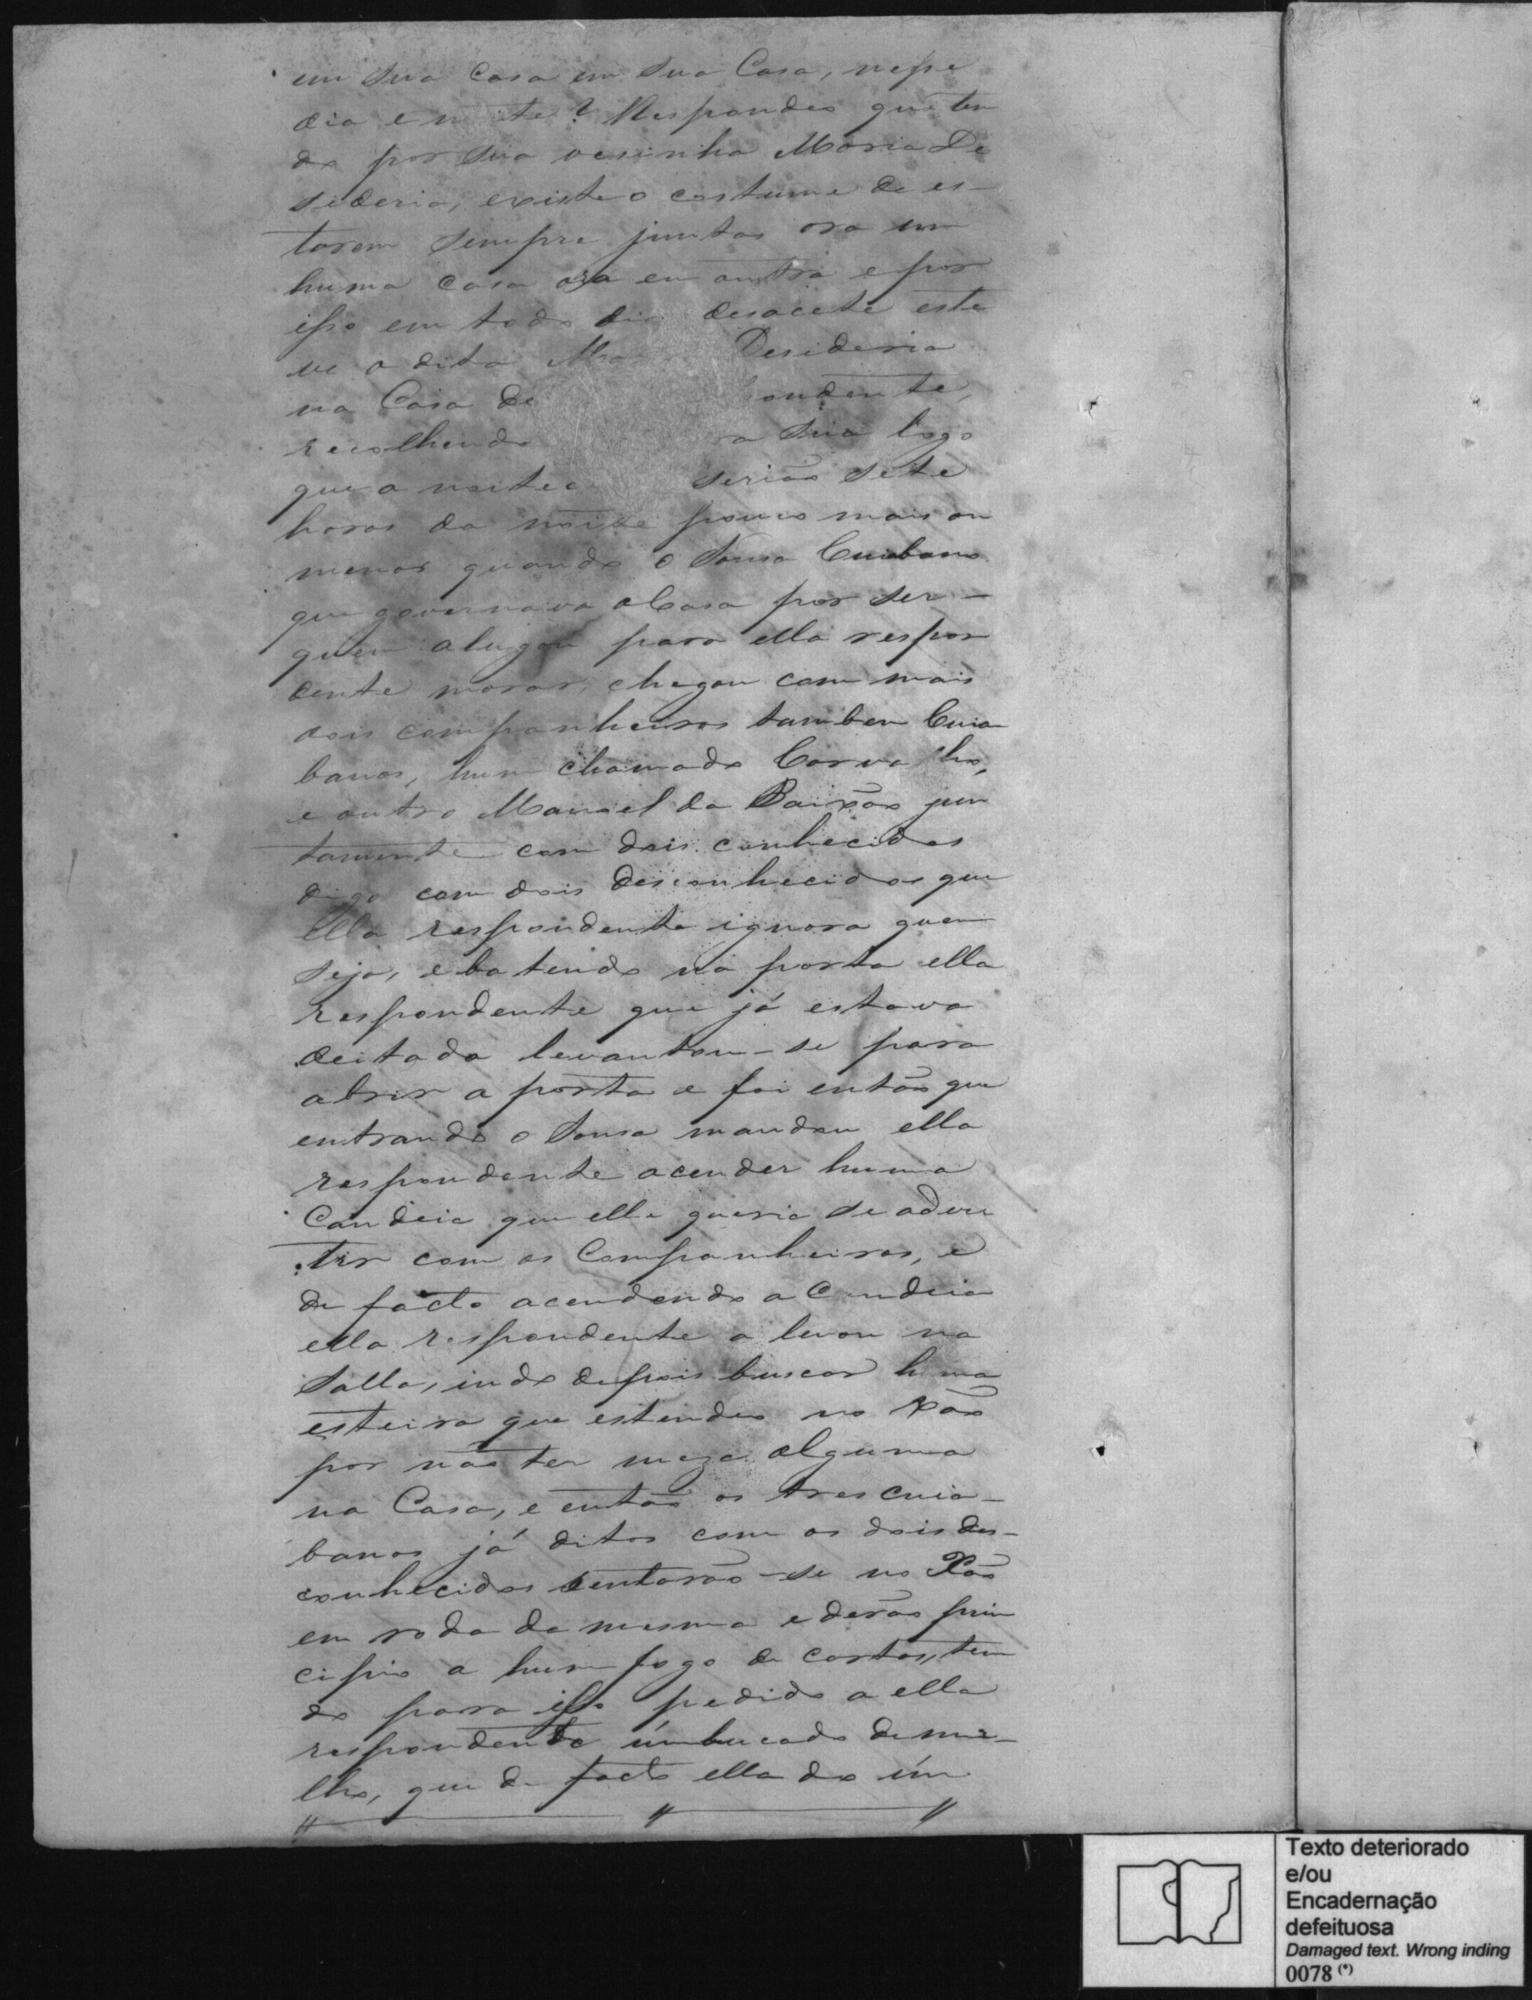 em Sua Casa em Sua Casa, nesse
dia e noite? Respondeo que ten
do por sua vesinha Maria De
sideria, existe o costume de es-
tarem sempre juntas ora em
huma casa ora em outra e por
isso em todo dia desacete este
ve a dita Desideria
na Casa de ondente,
recolhendo a sua logo
que a noitec serião sete
horas da noite pouco mais ou
menos quando o Sousa Cuiabano
que governava a Casa por ser-
quem alugou para ella respon
dente morar, chegou com mais
dois companheiros tambem Cuia
banos, hum chamado Carvalho,
e outro Manoel da Paixão jun
tamente com dois conhecidos
digo com dois desconhecidos que
ella respondente ignora quem
seja, e batendo na porta ella
respondente que já estava
deitada levantou-se para
abrir a porta e foi então que
entrando o Sousa mandou ella
respondente acender huma
Candeia que elle queria se adver
tir com os Companheiros, e
de facto acendendo a Candeia
ella respondente a levou na
Salla, indo depois buscar huma
esteira que estendeo no Xão
por não ter meza alguma
na Casa, e então os tres cuia-
banos já ditos com os dois des-
conhecidos sentarão-se no Xão
em roda da mesma e derão prin
cipio a hum jogo de cartas, ten
do para isso pedido a ella
respondente um bucado de mi-
lho, que de facto ella do um
Texto deteriorado
e/ou
Encadernação
defeituosa
Damaged text. Wrong inding
0078 (*)